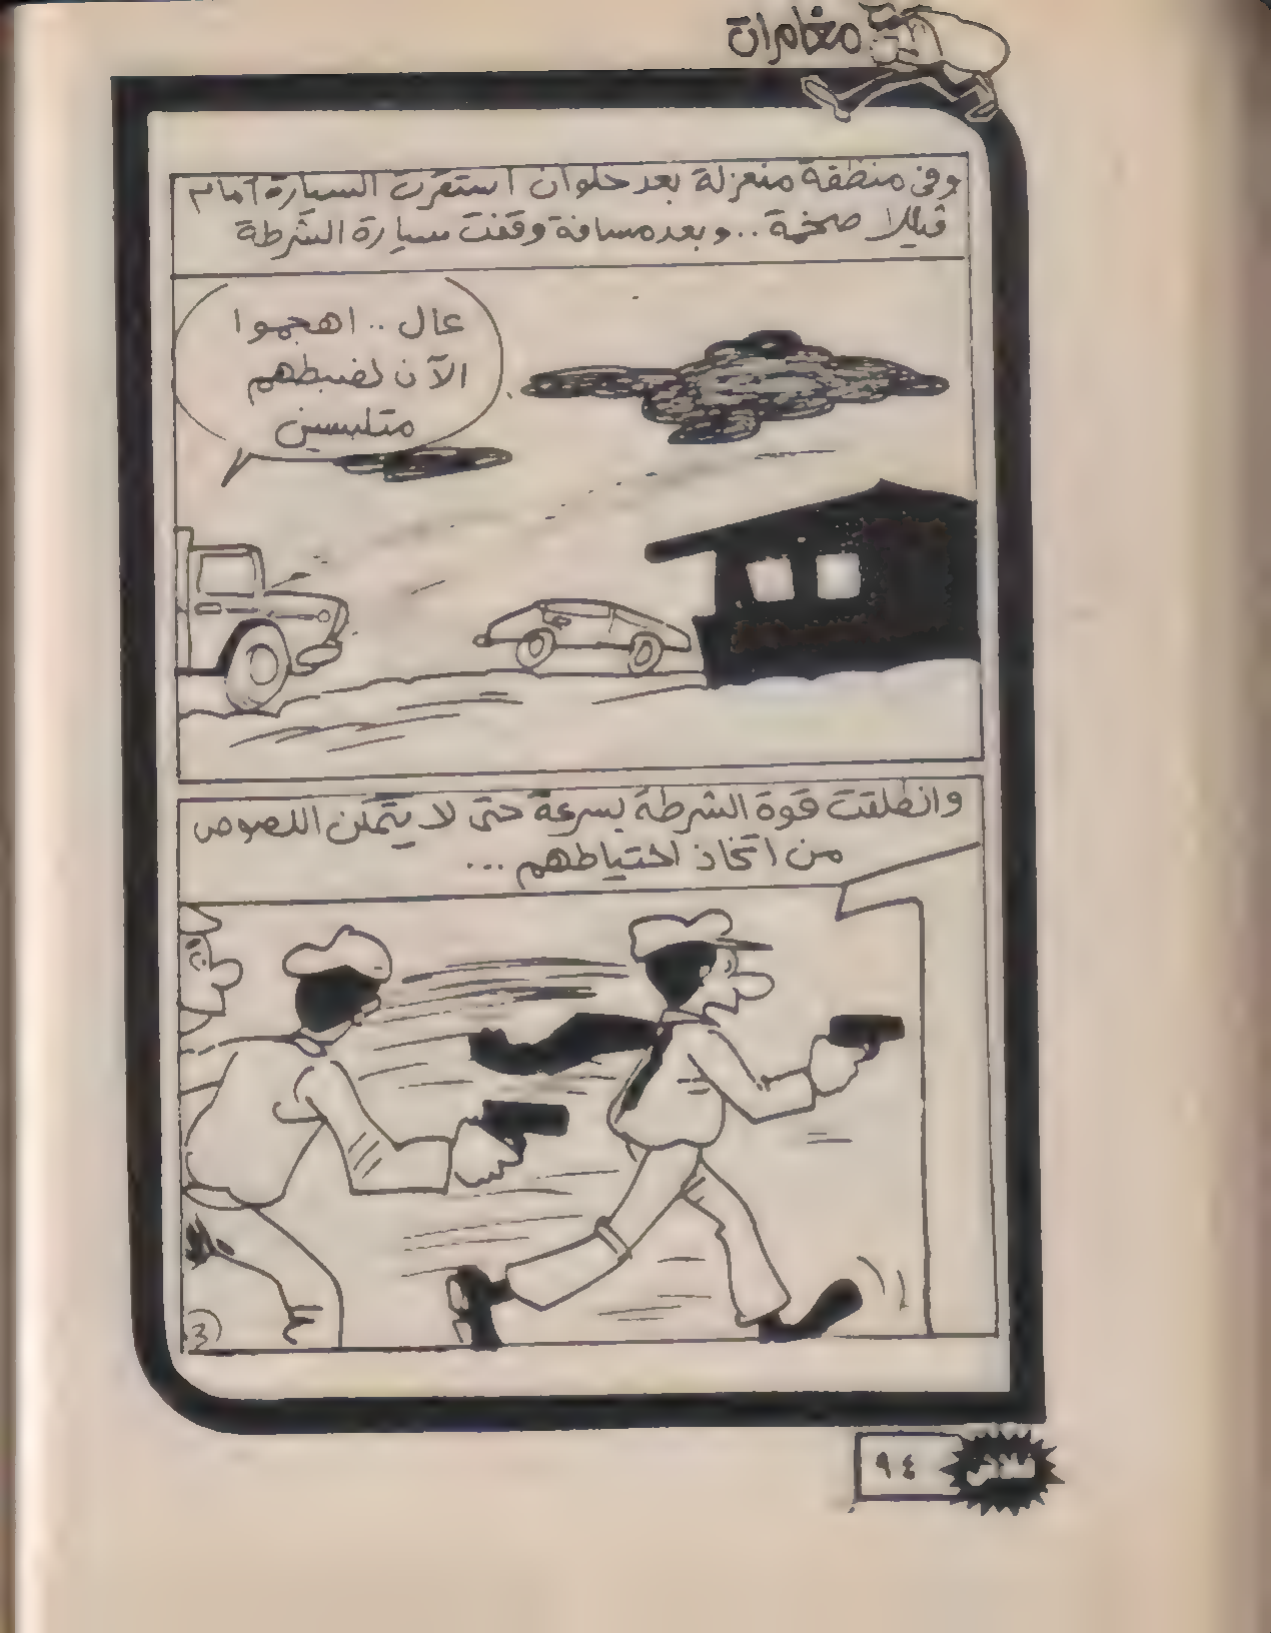 مغامرات
وفى منطقة منعزلة بعد حلوان استقرت السيارة أمام
ڤيللا ضخمة .. وبعد مسافة وقفت سيارة الشرطة
عال .. اهجموا
الآن لضبطهم
متلبسين
وانطلقت قوة الشرطة بسرعة حتى لا يتمكن اللصوص
من اتخاذ احتياطهم ...
3
٩٤